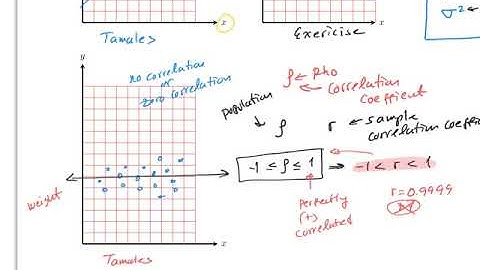 x
x
Tamales
Exericise
σ²
y
no correlation
or
zero correlation
ρ ← rho
← Correlation
coefficient
population
↓ ρ
r ← sample
correlation coeffici
-1 ≤ ρ ≤ 1 → -1 < r < 1
weight
perfectly
(+)
correlated
r = 0.9999
x
Tamales